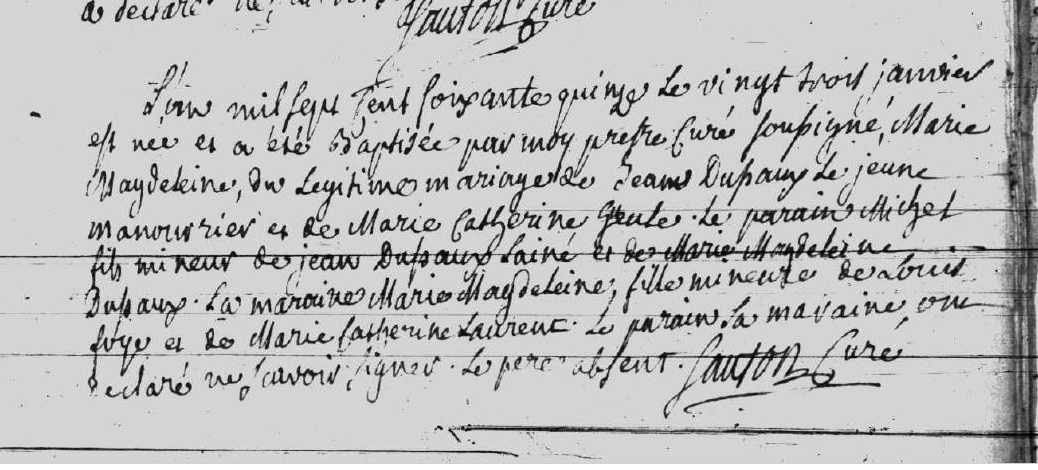 a declaré ne
Sauton Curé
L'an mil sept cent soixante quinze le vingt trois janvier
est neé et a été Baptisée par moy prestre Curé soussigné, Marie
Magdeleine, du legitime mariage de Jean Dussaux le jeune
manouvrier et de Marie Catherine Geule. le parain Michel
fils mineur de jean Dussaux lainé et de Marie Magdeleine
Dussaux. La maraine Marie Magdeleine, fille mineure de Louis
foye et de Marie Catherine Laurent. Le parain la maraine, ont
declaré ne scavoir signer. Le pere absent. Sauton Curé